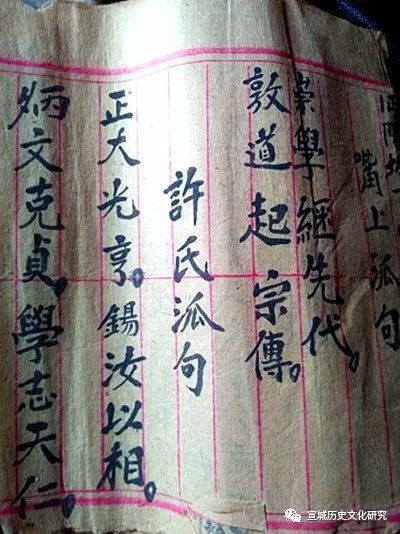 嘴上泒句
崇學継先代。
敦道起宗傳。
許氏泒句
正大光亨。錫汝以相。
炳文克貞。學志天仁。
宣城历史文化研究